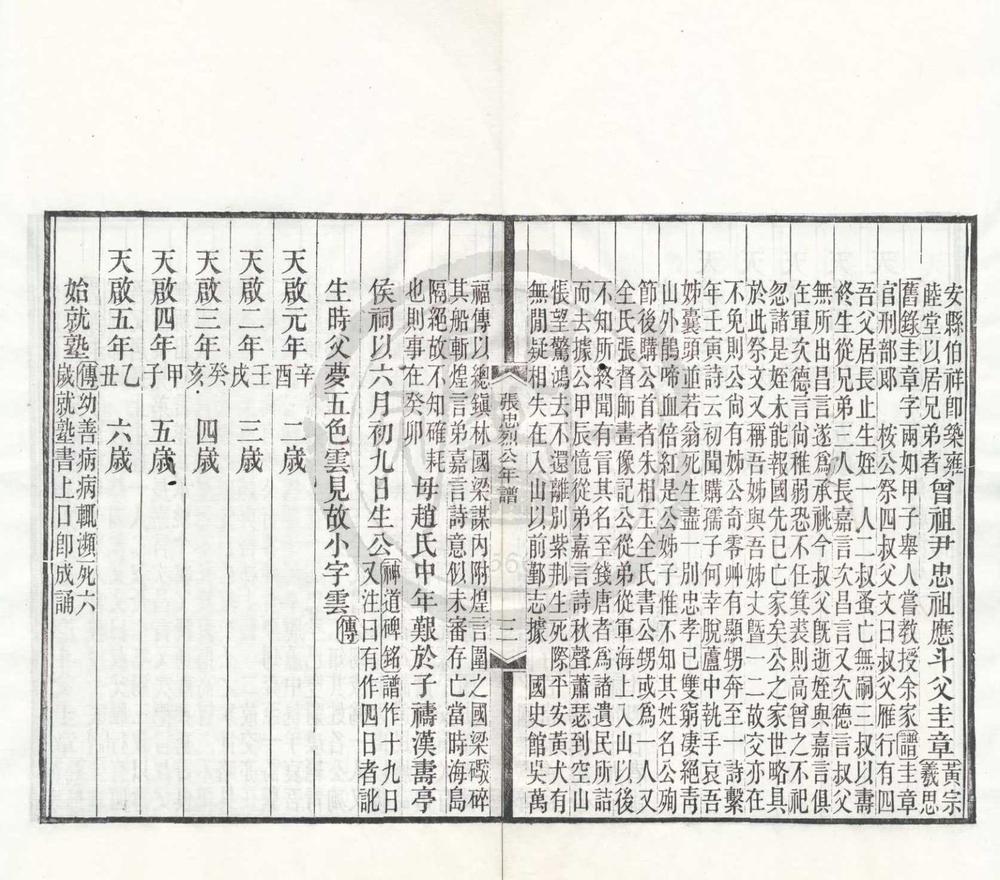 安縣伯祥卽築雍
睦堂以居兄弟者曾祖尹忠祖應斗父圭章黃宗
羲思
舊錄圭章字兩如甲子舉人嘗教授余家譜圭章
官刑部郎 桉公祭四叔父文曰叔父雁行有四
吾父居長止生姪一人二叔蚤亡無嗣三叔以壽
終生從兄弟三人長嘉言次昌言又次德言叔父
無所出昌言遂爲承祧今叔父旣逝姪與嘉言俱
在軍次德言尚稚弱恐不任箕裘則高曾之不祀
忽諸是姪未能報國先已亡家矣公之家世略具
於此祭文又稱吾姊與吾姊丈曁一二故交亦在
不免則公尚有姊公奇零艸有顯甥奔至 詩繫
年壬寅詩云初聞購孺子何幸脫蘆中執手哀吾
姊囊頭並若翁死生盡一別忠孝已雙窮凄絕靑
山外鵑啼血倍紅是公姊子惟不知其姓名公殉
節後購公首者朱相玉全氏書公甥或爲一人又
全氏張督師畫像記公從弟從軍海上入山以後
不知所終聞有冒其名至錢唐者爲諸遺民所詰
而去據公甲辰憶從弟嘉言詩秋聲蕭瑟到空山
悵望驚鴻去不還離別紫荆生死際平安黃犬有
無閒疑相失在入山以前鄞志據 國史館吳萬
張忠烈公年譜 三
福傳以總鎮林國梁謀內附煌言圍之國梁礟碎
其船斬煌言弟嘉言詩意似未審存亡當時海島
隔絕故不知確耗
也則事在癸卯 母趙氏中年艱於子禱漢壽亭
侯祠以六月初九日生公神道碑銘譜作九日
又注曰有作四日者訛
生時父夢五色雲見故小字雲傳
天啟元年辛酉 二歲
天啟二年壬戌 三歲
天啟三年癸亥 四歲
天啟四年甲子 五歲
天啟五年乙丑 六歲
始就塾傳幼善病病輒瀕死六
歲就塾書上口卽成誦